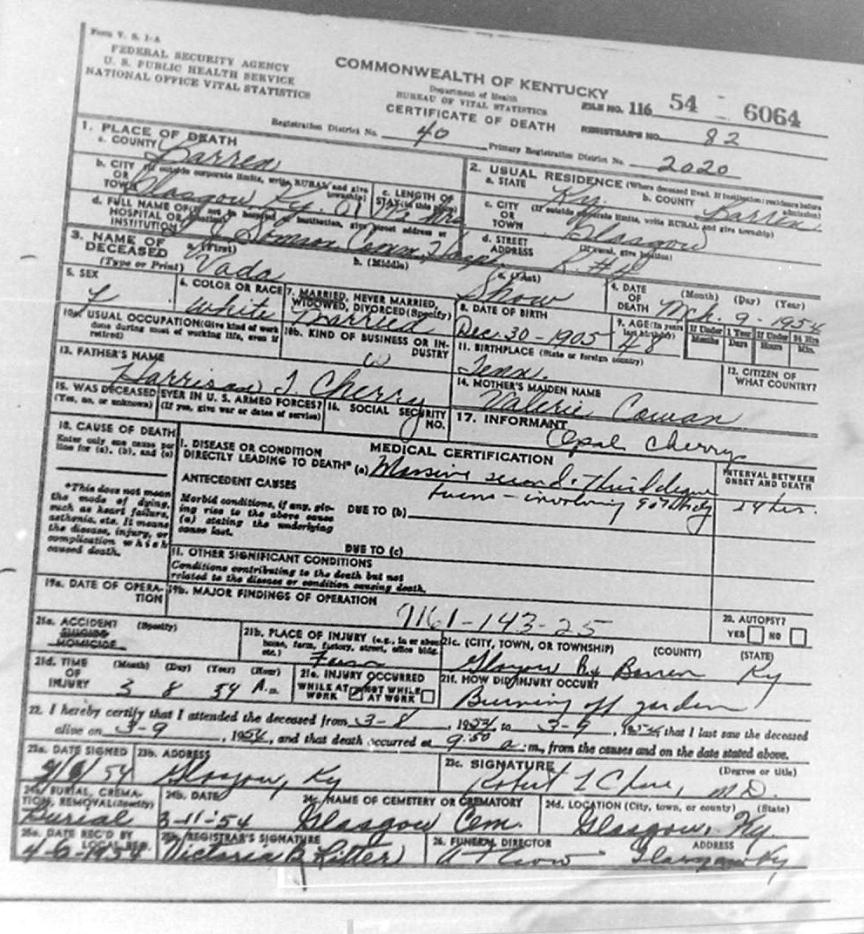 Form V. S. 1-A
FEDERAL SECURITY AGENCY
U. S. PUBLIC HEALTH SERVICE
NATIONAL OFFICE VITAL STATISTICS
COMMONWEALTH OF KENTUCKY
Department of Health
BUREAU OF VITAL STATISTICS
CERTIFICATE OF DEATH
FILE NO. 116 54 - 6064
REGISTRAR'S NO. 82
Registration District No. 40 Primary Registration District No. 2020
1. PLACE OF DEATH
a. COUNTY Barren
b. CITY OR TOWN (If outside corporate limits, write RURAL and give township) Glasgow Ky.
c. LENGTH OF STAY (in this place)
d. FULL NAME OF HOSPITAL OR INSTITUTION (If not in hospital or institution, give street address or Samson Comm. Hosp.
2. USUAL RESIDENCE (Where deceased lived. If institution: residence before admission)
a. STATE Ky. b. COUNTY Barren
c. CITY OR TOWN (If outside corporate limits, write RURAL and give township) Glasgow
d. STREET ADDRESS (If rural, give location)
3. NAME OF DECEASED (Type or Print) a. (First) Vada b. (Middle) c. (Last) Show
4. DATE OF DEATH (Month) (Day) (Year) Mch. 9 - 1954
5. SEX F
6. COLOR OR RACE White
7. MARRIED, NEVER MARRIED, WIDOWED, DIVORCED (Specify) Married
8. DATE OF BIRTH Dec. 30 - 1905
9. AGE (In years last birthday) 48 If Under 1 Year Months Days If Under 24 Hrs. Hours Min.
10a. USUAL OCCUPATION (Give kind of work done during most of working life, even if retired)
10b. KIND OF BUSINESS OR INDUSTRY
11. BIRTHPLACE (State or foreign country) Tenn.
12. CITIZEN OF WHAT COUNTRY?
13. FATHER'S NAME Harrison T. Cherry
14. MOTHER'S MAIDEN NAME Valerie Cowan
15. WAS DECEASED EVER IN U. S. ARMED FORCES? (Yes, no, or unknown) (If yes, give war or dates of service)
16. SOCIAL SECURITY NO.
17. INFORMANT Opal Cherry
18. CAUSE OF DEATH
Enter only one cause per line for (a), (b), and (c)
*This does not mean the mode of dying, such as heart failure, asthenia, etc. It means the disease, injury, or complication which caused death.
MEDICAL CERTIFICATION
I. DISEASE OR CONDITION DIRECTLY LEADING TO DEATH* (a) Massive second & third degree
burns - involving body
INTERVAL BETWEEN ONSET AND DEATH 24 hrs.
ANTECEDENT CAUSES
Morbid conditions, if any, giving rise to the above cause (a) stating the underlying cause last.
DUE TO (b)
DUE TO (c)
II. OTHER SIGNIFICANT CONDITIONS
Conditions contributing to the death but not related to the disease or condition causing death.
19a. DATE OF OPERATION
19b. MAJOR FINDINGS OF OPERATION
9161-143-25
20. AUTOPSY? YES NO
21a. ACCIDENT SUICIDE HOMICIDE (Specify)
21b. PLACE OF INJURY (e.g., in or about home, farm, factory, street, office bldg., etc.) Farm
21c. (CITY, TOWN, OR TOWNSHIP) (COUNTY) (STATE) Glasgow Barren Ky
21d. TIME OF INJURY (Month) (Day) (Year) (Hour) 3 8 54 A.m.
21e. INJURY OCCURRED WHILE AT WORK NOT WHILE AT WORK
21f. HOW DID INJURY OCCUR? Burning off garden
22. I hereby certify that I attended the deceased from 3-8, 1954 to 3-9, 1954 that I last saw the deceased
alive on 3-9, 1954, and that death occurred at 9:50 a m., from the causes and on the date stated above.
23a. DATE SIGNED
23b. ADDRESS Glasgow, Ky
23c. SIGNATURE (Degree or title) Robert L M.D.
24a. BURIAL, CREMATION, REMOVAL (Specify) Burial
24b. DATE 3-11-54
24c. NAME OF CEMETERY OR CREMATORY Glasgow Cem.
24d. LOCATION (City, town, or county) (State) Glasgow, Ky.
25a. DATE REC'D BY LOCAL REG. 4-6-1954
25b. REGISTRAR'S SIGNATURE Victoria B. Ritter
26. FUNERAL DIRECTOR ADDRESS Glasgow Ky